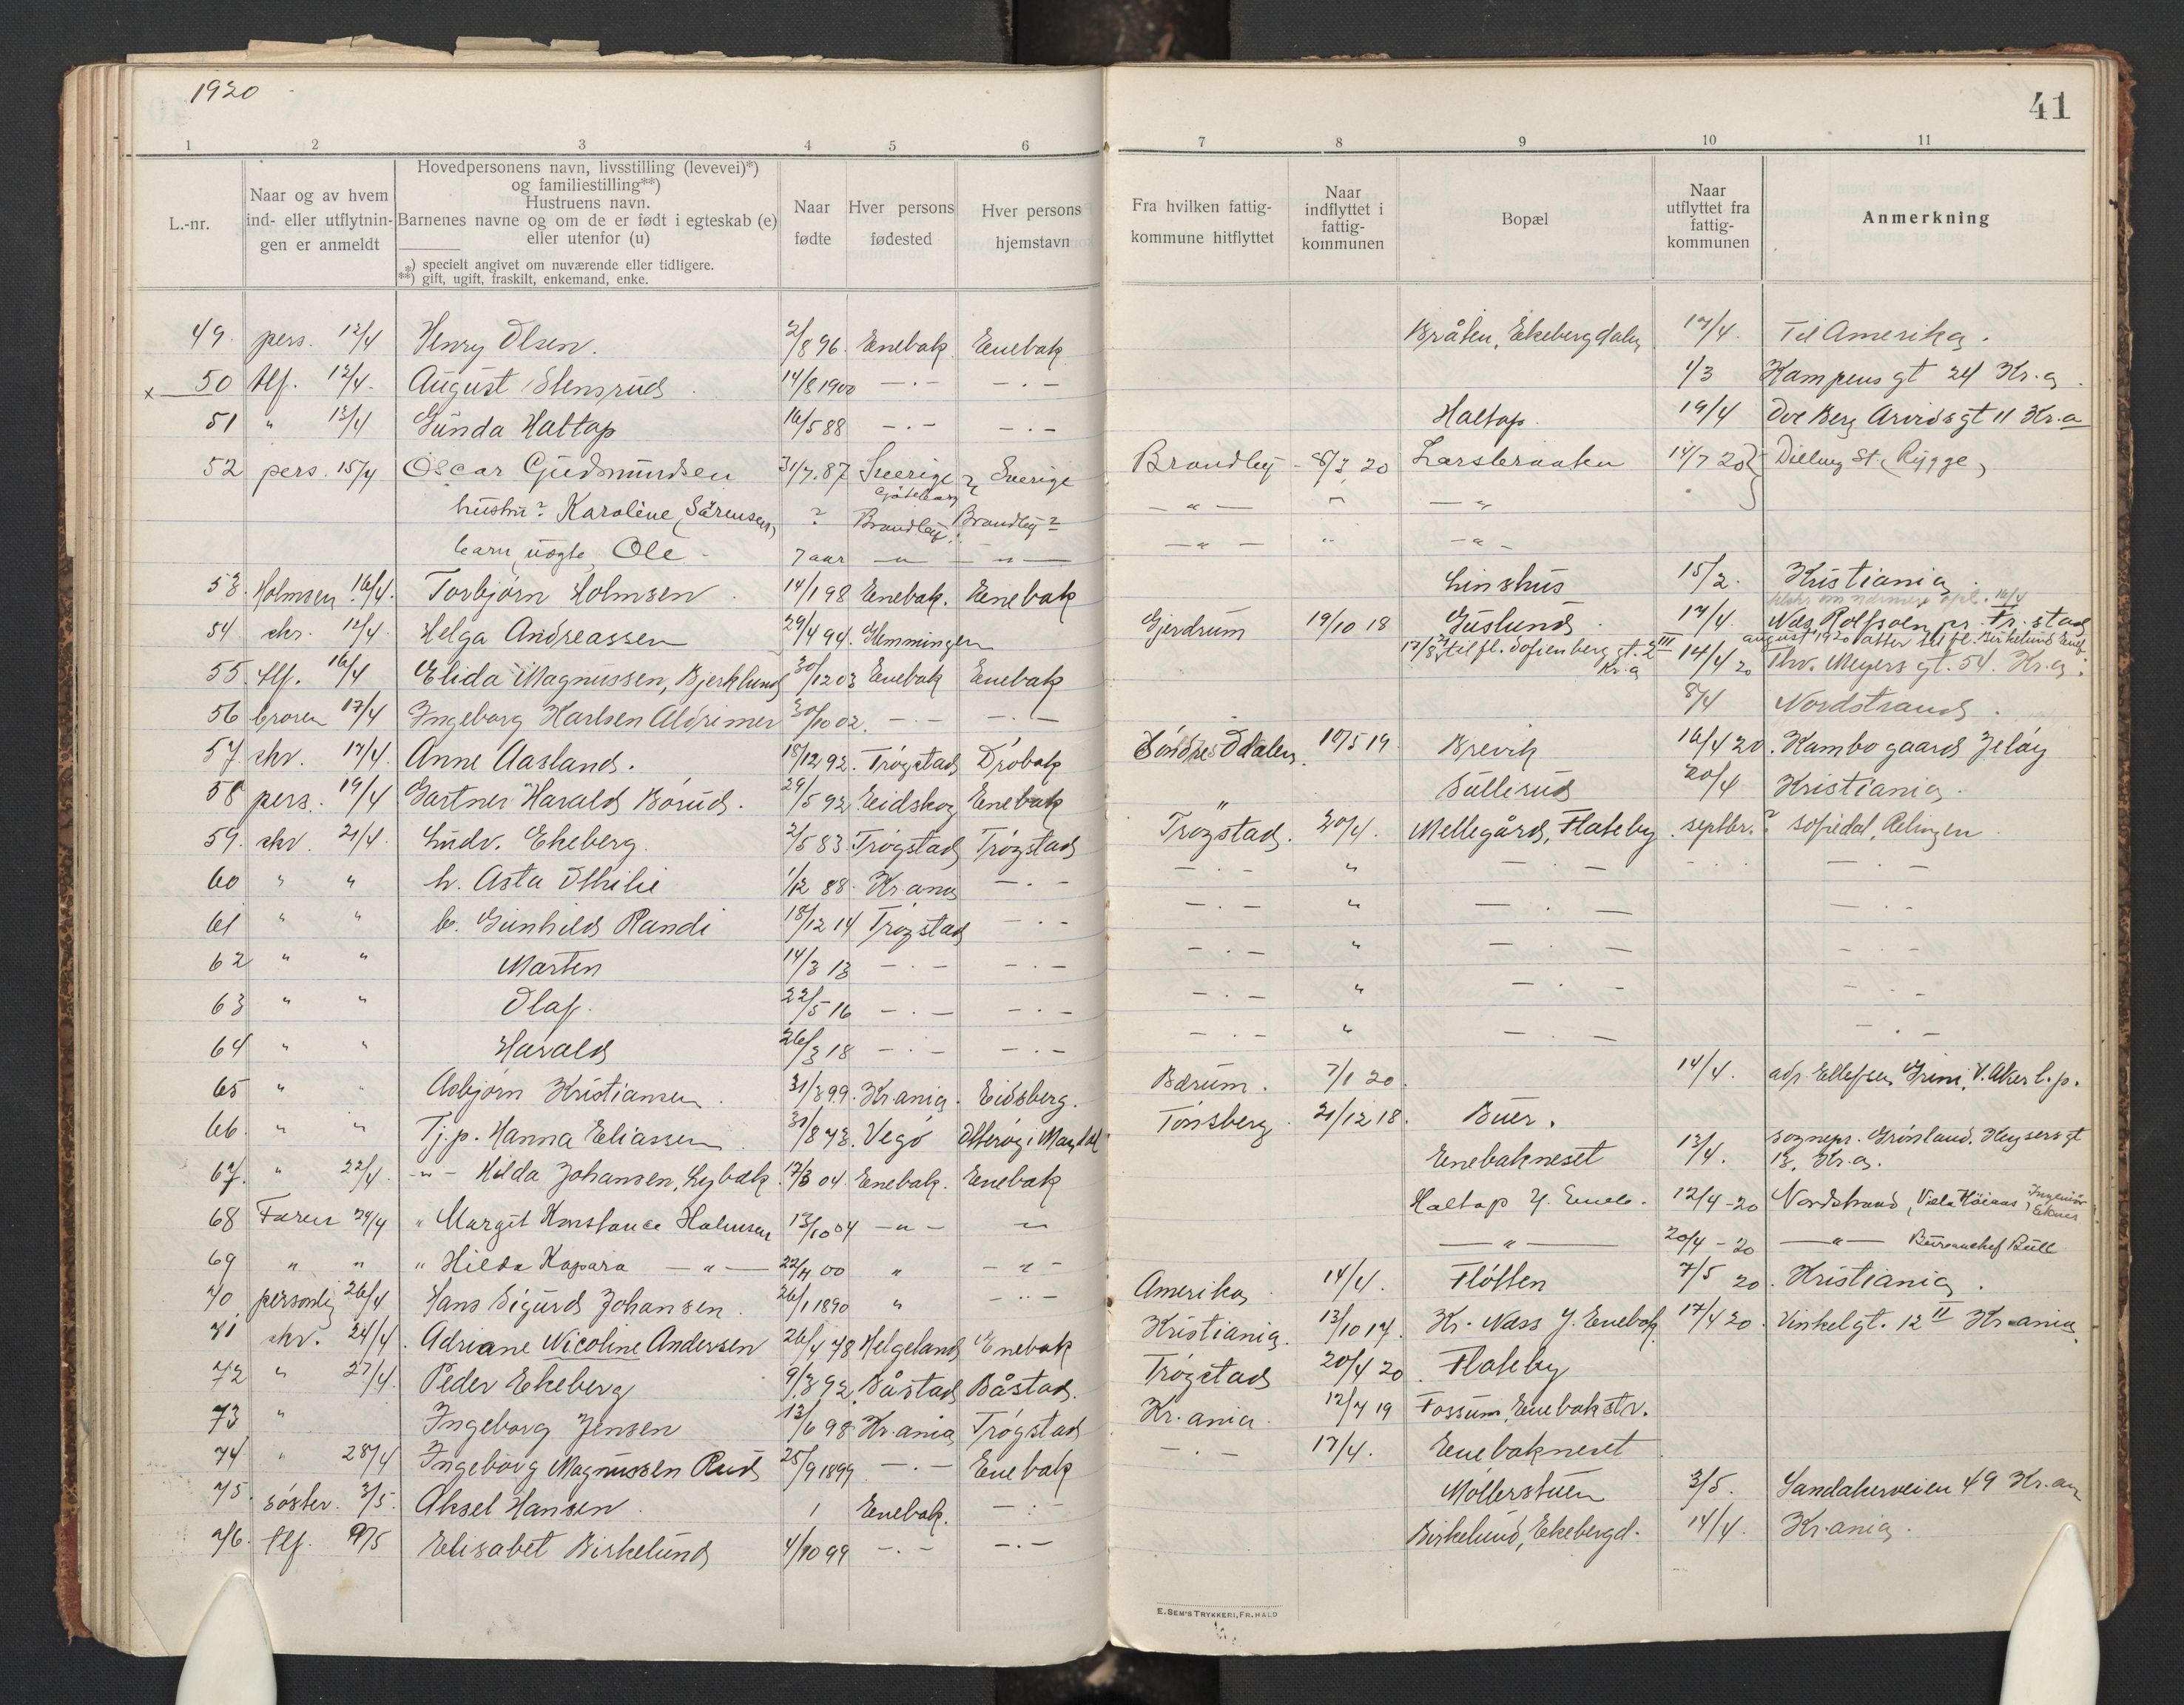 1920
41
1 2 3 4 5 6 7 8 9 10 11
L.-nr.
Naar og av hvem ind- eller utflytnin- gen er anmeldt
Hovedpersonens navn, livsstilling (levevei)*)
og familiestilling**)
Hustruens navn.
Barnenes navne og om de er født i egteskab (e)
eller utenfor (u)
*) specielt angivet om nuværende eller tidligere.
**) gift, ugift, fraskilt, enkemand, enke.
Naar fødte
Hver persons fødested
Hver persons hjemstavn
Fra hvilken fattig- kommune hitflyttet
Naar indflyttet i fattig- kommunen
Bopæl
Naar utflyttet fra fattig- kommunen
Anmerkning
49 pers. 12/4 Henry Olsen. 2/8 96. Enebak Enebak Bråten, Ekebergdalen 17/4. Til Amerika.
x 50 tlf. 12/4. August Stensrud 14/8 1900 - . - - . - 1/3 Kampens gt 24 Kr.a.
51 " 13/4 Gunda Haltop 16/5 88 - . - - . - Haltop. 19/4 Berg Arvids gt 11 Kr.a
52 pers. 15/4 Oscar Gudmundsen 31/7.87 Sverige Gøteborg ? Sverige Brandbu 8/3 20 Larsbraaten 14/7 20 Dilling St. Rygge
hustru? Karoline Sørensen ? Brandbu Brandbu? - " - " - "
barn uægte Ole - 7 aar - " - - " - - " - " - " -
53. Holmsen 16/4. Torbjørn Holmsen. 14/1 98 Enebak. Enebak Linshus 15/2. Kristiania.
54 skr. 12/4. Helga Andreassen 29/4 94. Glemmingen Gjerdrum 19/10 18 Guslund. 17/4. Nils Rolfsøen pr. Fr.stad
17/8 til fl. Sofienberg gt. 2 III Kr.a august 1920 atter til fl. Birkelund Eneb
55. tlf. 16/4 Elida Magnussen, Bjerklund 30/12 03 Enebak Enebak 14/4 20 Thv. Meyers gt. 54. Kr.a.
56 broren 17/4 Ingeborg Karlsen Aldrimer 30/10 02. - . - - . - 8/4 Nordstrand.
57. skr. 17/4. Anne Aasland. 18/12 92. Trøgstad Drøbak Søndre Odalen. 10/5 19 Brevik 16/4 20. Kambo gaard Jeløy
58 pers. 19/4 Gartner Harald Børud. 29/5 92 Eidskog Enebak " Bullerud 20/4 Kristiania.
59. skr. 21/4. Ludv. Ekeberg. 2/5 83 Trøgstad Trøgstad Trøgstad. 20/4. Mellegård, Flateby. septbr. ? Sofiedal, Rælingen.
60 " " h. Asta Othilie 1/12 88. Kr.ania - . - - . - " - . - - . - - . -
61 " " b. Gunhild Randi 18/12 14 Trøgstad - . - - . - " - . - - . -
62 " " Marten 14/3 13 - . - - . - - . - " - . - - . -
63 " " Olaf. 22/5 16 - . - - . - - . - " - . - - . -
64 " " Harald 26/3 18 - . - - . - - . - " - . - - . -
65 " " Asbjørn Kristiansen. 31/8 99. Kr.ania. Eidsberg. Bærum. 7/1 20. 14/4. adr. Ellefsen, Grini, V. Aker l.p.
66. " " Tj.p. Hanna Eliassen 31/8 73. Vegø Otterøy i Namdal Tønsberg 21/12 18. Buer.
67. " 22/4 - " - Hilda Johansen, Lybæk. 17/3 04. Enebak. Enebak Enebakneset 13/4. sogneps. Grønland. Keysers gt 13. Kr.a.
68 Faren 24/4 " Margit Konstance Holmsen 13/10 04 - " - " Haltop Y. Eneb. 12/4 - 20 Nordstrand, Villa Høiaas, Ingeniør Eknes
69 " " " Hilda Kapara - " - 22/4 00 " - " - - " - 20/4 - 20 - " - Bureauchef Bull
70 personlig 26/4 Hans Sigurd Johansen. 26/1 1890 " - " - Amerika 14/4. Fløtten 7/5 20. Kristiania.
71 skr. 24/4. Adriane Nicoline Andersen 26/4 78 Helgeland Enebak Kristiania. 13/10 17. Kr. Næss Y. Enebak. 17/4 20. Vinkelgt. 12 II Kr.ania
72 " 27/4. Peder Ekeberg 9/3 92. Båstad Båstad. Trøgstad 20/4 20. Flateby
73 " Ingeborg Jensen 13/6 98 Kr.ania Trøgstad Kr.ania. 12/7 19 Fossum, Enebakstr.
74 " 28/4 Ingeborg Magnussen Rud 25/9 1899 - . - Enebak - . - 17/4. Enebakneset
75. søster. 3/5. Aksel Hansen. 1 Enebak. - . - Møllerstuen 3/5. Sandakerveien 49 Kr.an
76. tlf. 9/5 Elisabet Birkelund 4/10 99 - . - - . - Birkelund, Ekebergd. 14/4. Kr.ania.
E. SEM'S TRYKKERI, FR.HALD